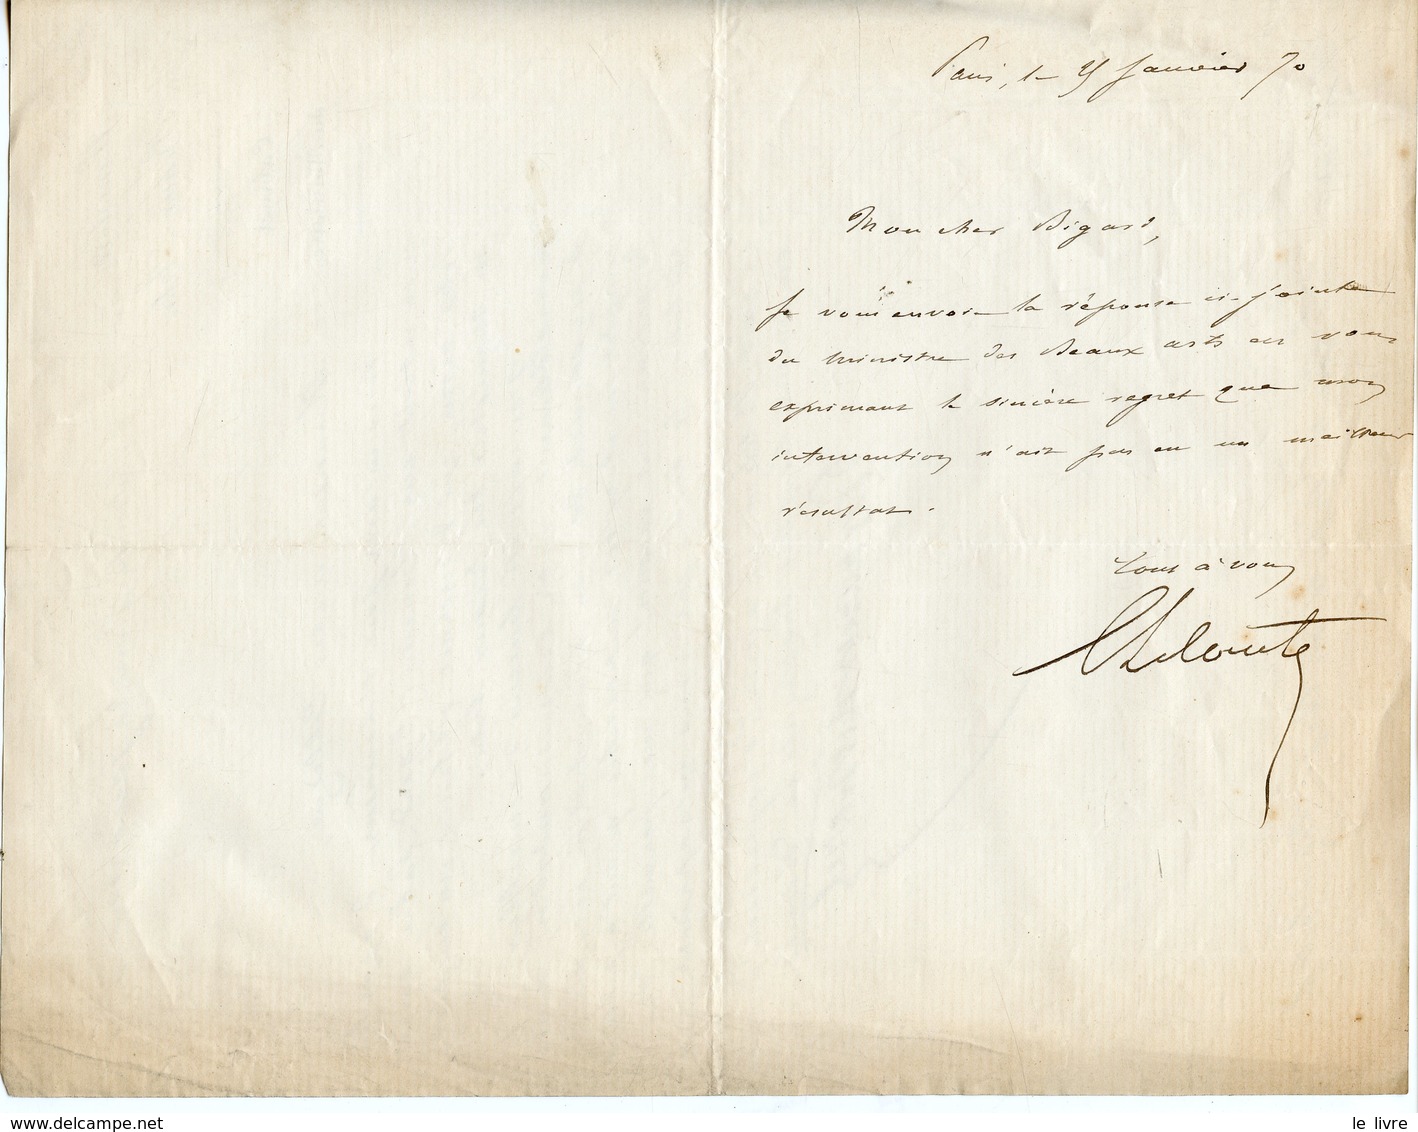 Paris, le 25 Janvier 70
Mon cher Bigard,
Je vous envoie la réponse ci-jointe
du Ministre des Beaux arts en vous
exprimant le sincère regret que mon
intervention n'ait pas eu un meilleur
résultat.
Tout à vous
Lecomte
le livre